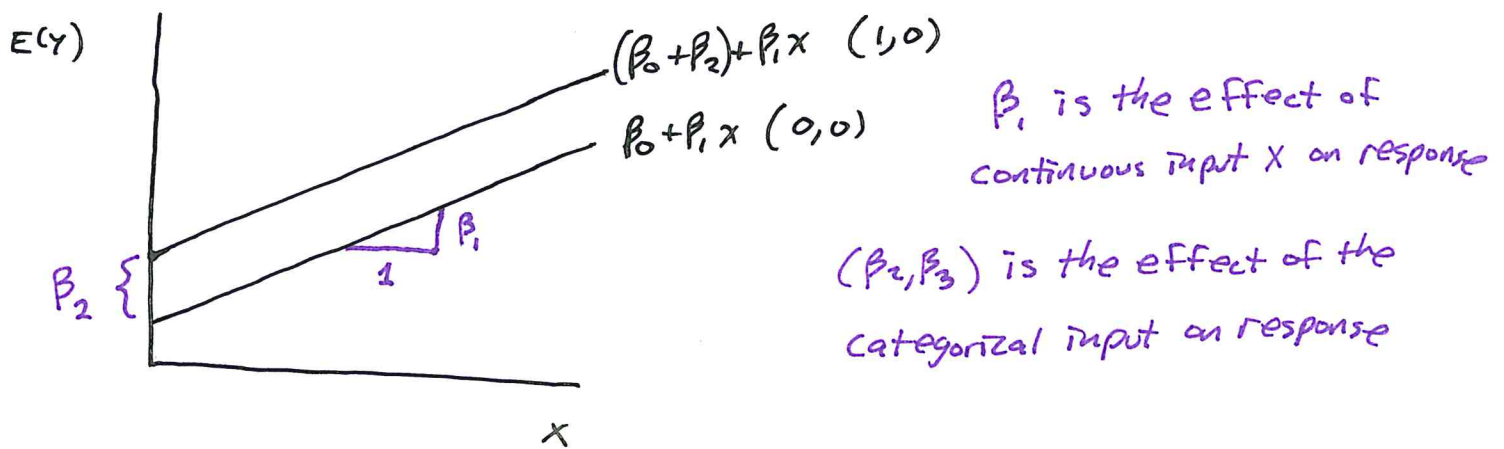 E(Y)
(β₀+β₂)+β₁x (1,0)
β₀+β₁x (0,0)
β₁ is the effect of
continuous input X on response
β₁
1
β₂ {
(β₂,β₃) is the effect of the
categorical input on response
X